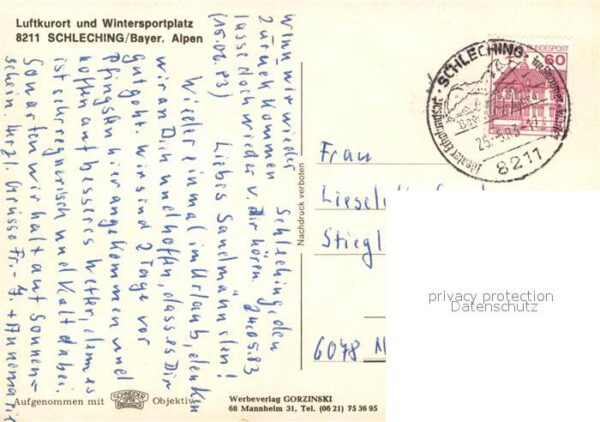 Luftkurort und Wintersportplatz
8211 SCHLECHING/Bayer. Alpen
Schleching, den
24.05.83
Liebes Sandmännlein!
Wieder einmal im Urlaub, denken
wir an Dich und hoffen, dass es Dir
gut geht. Wir sind 2 Tage vor
Pfingsten hier angekommen und
hoffen auf besseres Wetter, denn es
ist sehr regnerisch und kalt dabei.
So warten wir halt auf Sonnen=
schein. Herzl. Grüsse Fr.- J. + Annemarie
Wenn wir wieder
zurück kommen
lasse doch wieder v. Dir hören
(15.06.83)
Nachdruck verboten
DEUTSCHE BUNDESPOST
60
SCHLECHING
25.-5.83-17
8211
Frau
Stiegl
6078 N
privacy protection
Datenschutz
Aufgenommen mit
SCHNEIDER
KREUZNACH
Objektiv
Werbeverlag GORZINSKI
68 Mannheim 31, Tel. (06 21) 75 36 95